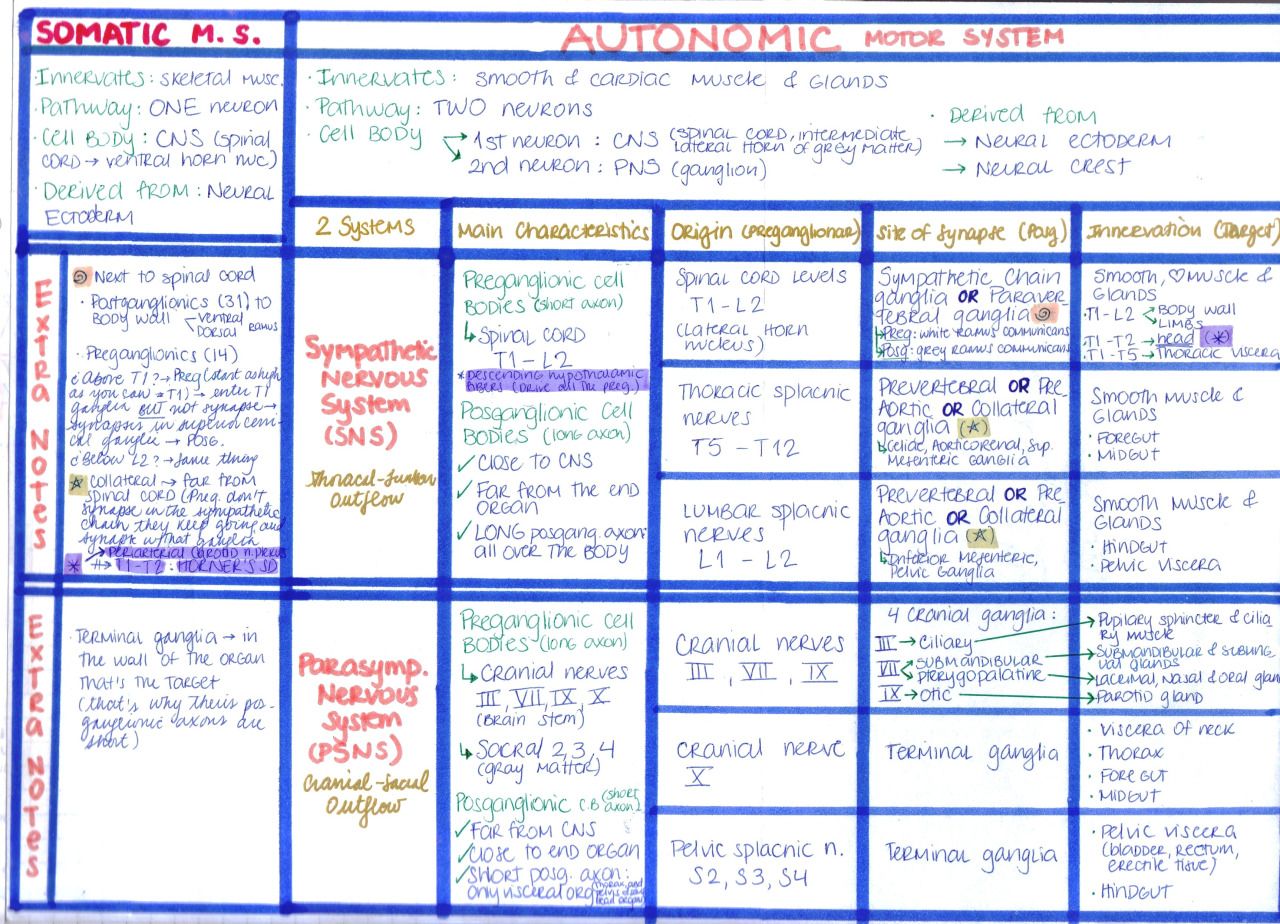 SOMATIC M. S.
AUTONOMIC MOTOR SYSTEM
Innervates: skeletal musc.
· Pathway: ONE neuron
· Cell BODY: CNS (spinal
CORD → ventral horn nuc)
· Derived from: Neural
ECTODERM
· Innervates: smooth & cardiac muscle & Glands
· Pathway: TWO neurons
· Cell BODY
→ 1st neuron: CNS (spinal cord, intermediate
lateral horn of grey matter)
2nd neuron: PNS (ganglion)
· Derived from
→ Neural ectoderm
→ Neural crest
2 Systems
Main Characteristics
Origin (Preganglionar)
Site of Synapse (Posg)
Innervation (Target)
EXTRA NOTES
Next to spinal cord
· Postganglionics (31) to
BODY wall
ventral
Dorsal
Ramus
· Preganglionics (14)
¿Above T1? → Preg (start as high
as you can = T1) → enter T1
ganglia BUT not synapse →
synapsis in superid cervi-
cal ganglia → POSG.
¿Below L2? → same thing
☆ Collateral → far from
spinal cord (Preg. don't
synapse in the sympathetic
chain they keep going and
synapse w/ that ganglia
→ Periarterial carotid n. plexus
* → T1-T2: HORNER'S SD
Sympathetic
Nervous
System
(SNS)
Outflow
Preganglionic cell
BODIES (short axon)
↳ Spinal CORD
T1 - L2
*Descending hypothalamic
fibers (Drive all the preg.)
Posganglionic Cell
BODIES (long axon)
✓ Close to CNS
✓ Far from the end
organ
✓ LONG posgang. axon:
all over the BODY
Spinal CORD Levels
T1 - L2
(Lateral Horn
nucleus)
Sympathetic Chain
ganglia OR Paraver-
tebral ganglia
↳ Preg: white ramus communicans
↳ Posg: grey ramus communicans
Smooth, ♡ Muscle &
Glands
· T1 - L2
BODY wall
LIMBS
· T1 - T2 → head (*)
· T1 - T5 → Thoracic viscera
Thoracic splacnic
nerves
T5 - T12
Prevertebral OR Pre
Aortic OR Collateral
ganglia (☆)
↳ Celiac, Aorticorenal, Sup.
Mesenteric Ganglia
Smooth muscle &
Glands
· Foregut
· Midgut
LUMBAR splacnic
nerves
L1 - L2
Prevertebral OR Pre
Aortic OR Collateral
ganglia (☆)
↳ Inferior Mesenteric,
Pelvic Ganglia
Smooth Muscle &
Glands
· Hindgut
· Pelvic viscera
EXTRA NOTES
· Terminal ganglia → in
the wall of the organ
that's the target
(that's why theiis pos-
ganglionic axons are
short)
Parasymp.
Nervous
System
(PSNS)
Cranial-Sacral
Outflow
Preganglionic cell
BODIES (long axon)
↳ Cranial nerves
III, VII, IX, X
(Brain stem)
↳ Sacral 2, 3, 4
(gray matter)
Posganglionic C.B (short axon)
✓ Far from CNS
✓ Close to end organ
✓ Short posg. axon:
only visceral org
Cranial nerves
III, VII, IX
4 Cranial ganglia:
III → Ciliary
VII
Submandibular
Pterygopalatine
IX → Otic
Pupilary sphincter & cilia
ry muscle
Submandibular & subling
ual glands
Lacrimal, Nasal & oral glan
Parotid gland
Cranial nerve
X
Terminal ganglia
· Viscera of neck
· Thorax
· Fore gut
· Midgut
Pelvic splacnic n.
S2, S3, S4
Terminal ganglia
· Pelvic viscera
(bladder, rectum,
erectile tisue)
· Hindgut